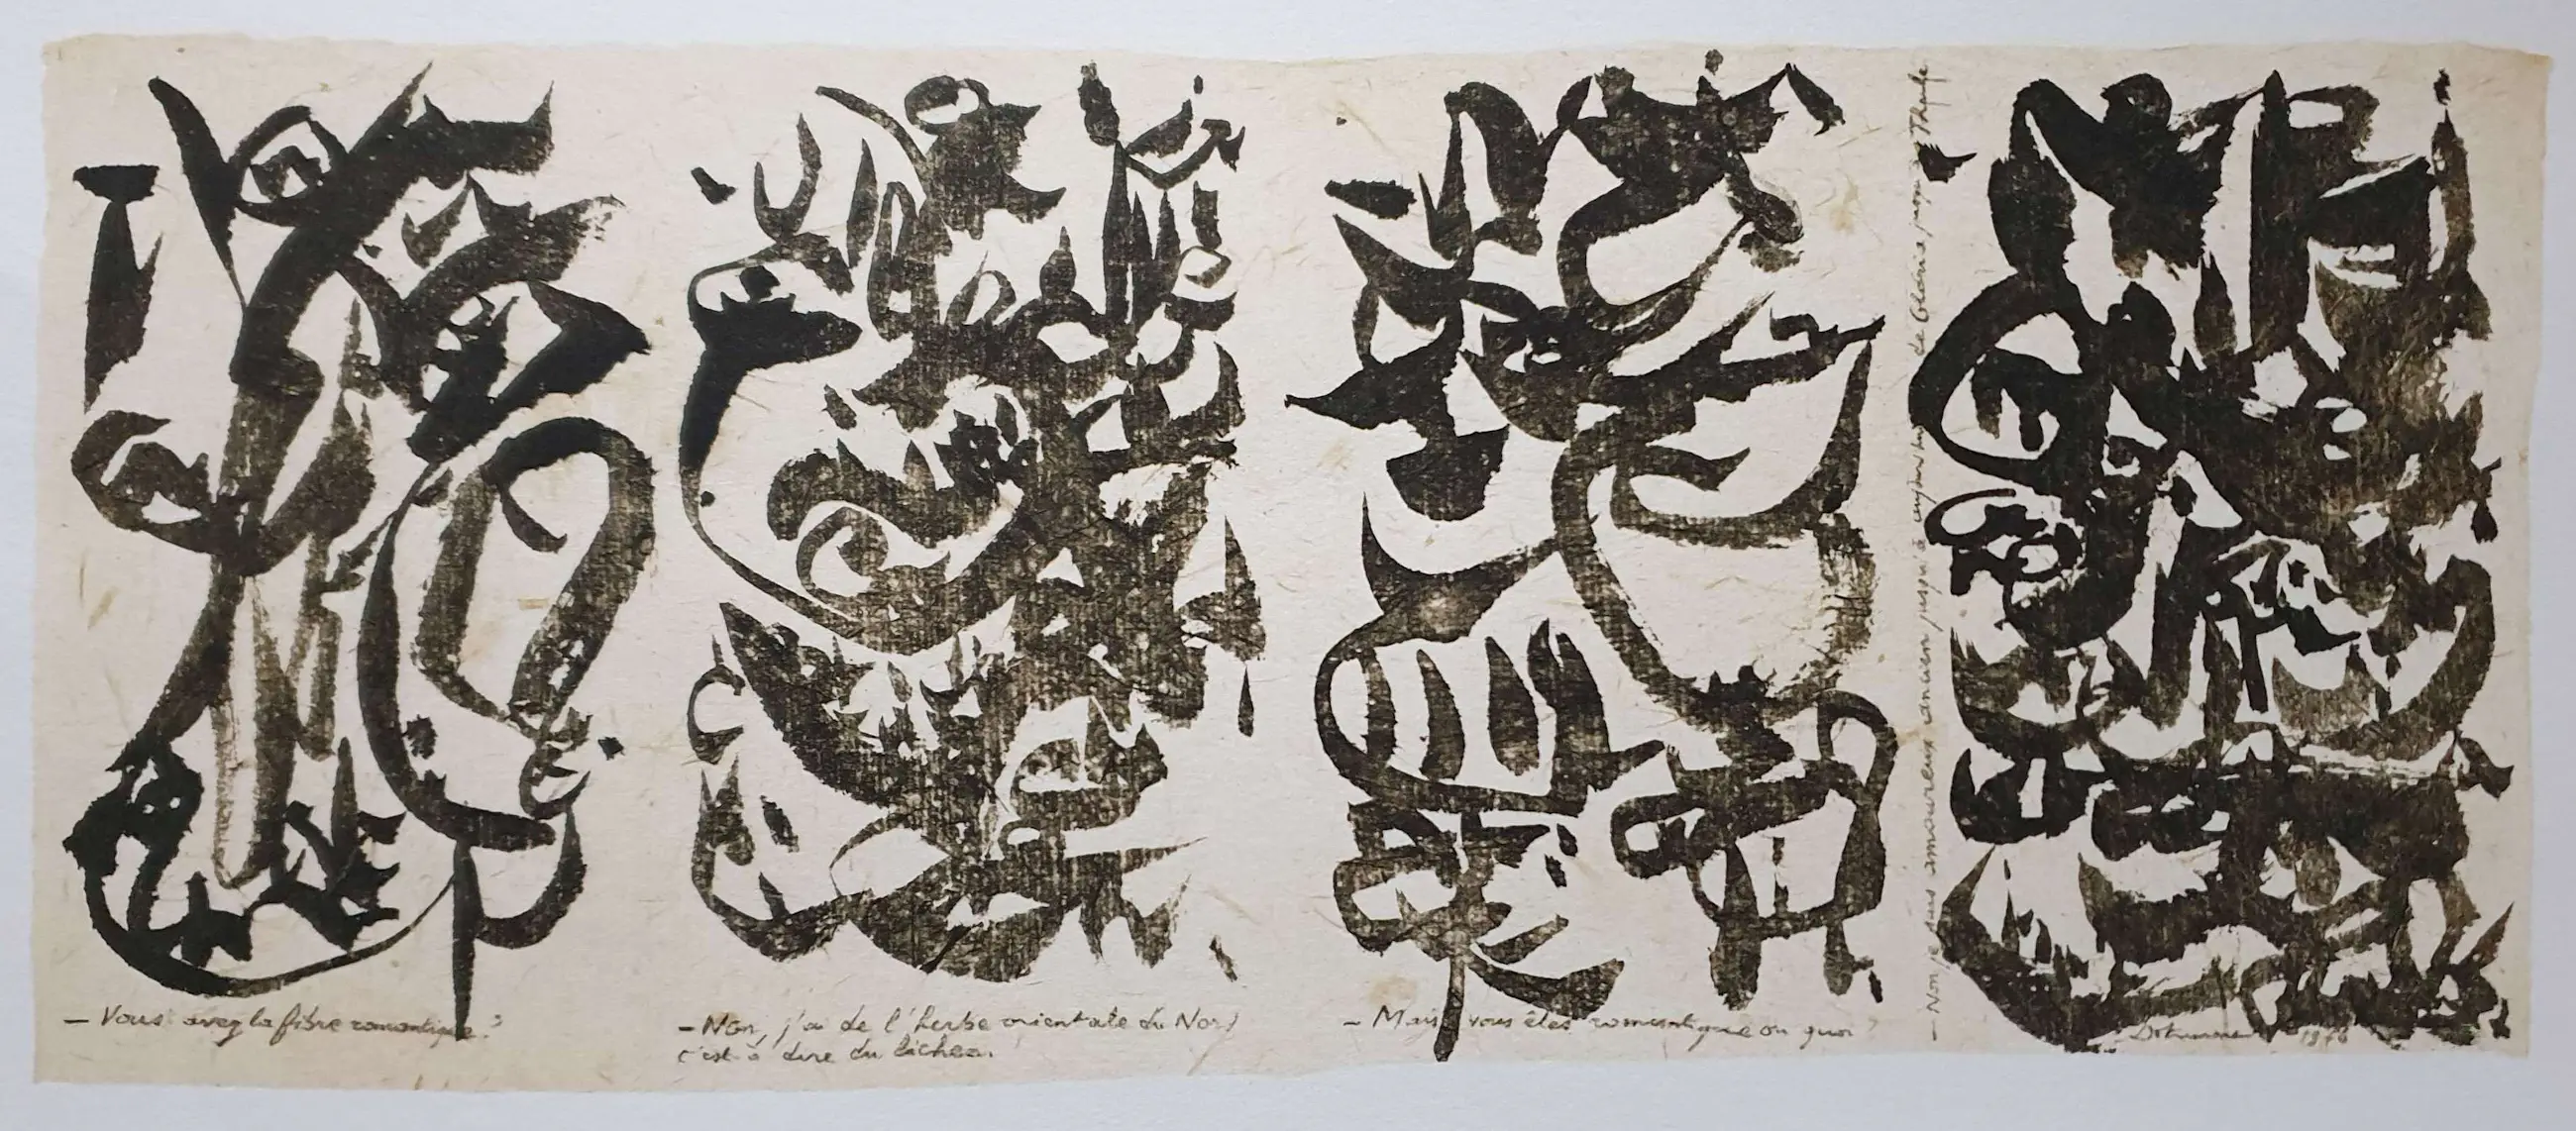 — Vous avez la fibre romantique?
— Non, j'ai de l'herbe orientale du Nord
c'est à dire du lichen.
— Mais vous êtes romantique ou quoi?
— Non je suis amoureux ancien jusqu'à aujourd'hui de Gloria
Dotremont 1976